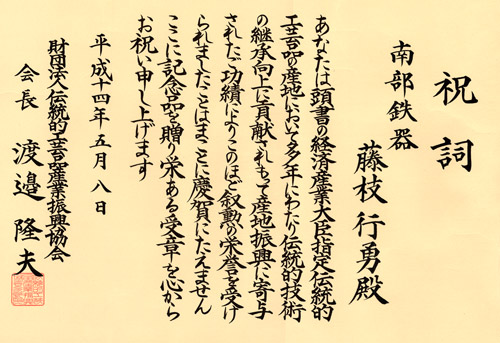 祝詞
南部鉄器
藤枝行勇殿
あなたは頭書の経済産業大臣指定伝統的
工芸品の産地において多年にわたり伝統的技術
の継承向上に貢献されもって産地振興に寄与
されたご功績によりこのほど叙勲の栄誉を受け
られましたことはまことに慶賀にたえません
ここに記念品を贈り栄ある受章を心から
お祝い申し上げます
平成十四年五月八日
財団法人伝統的工芸品産業振興協会
会長 渡邉隆夫